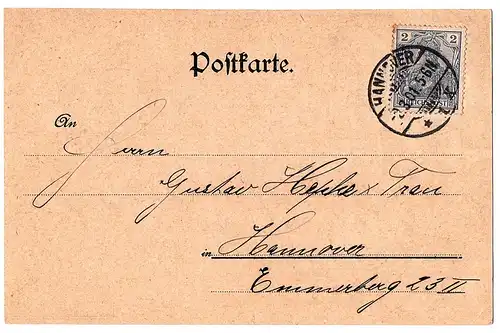 2 2
Postkarte.
HANNOVER
An
Herrn
Gustav Hepke x Frau
in Hannover
Emmerberg 23 II